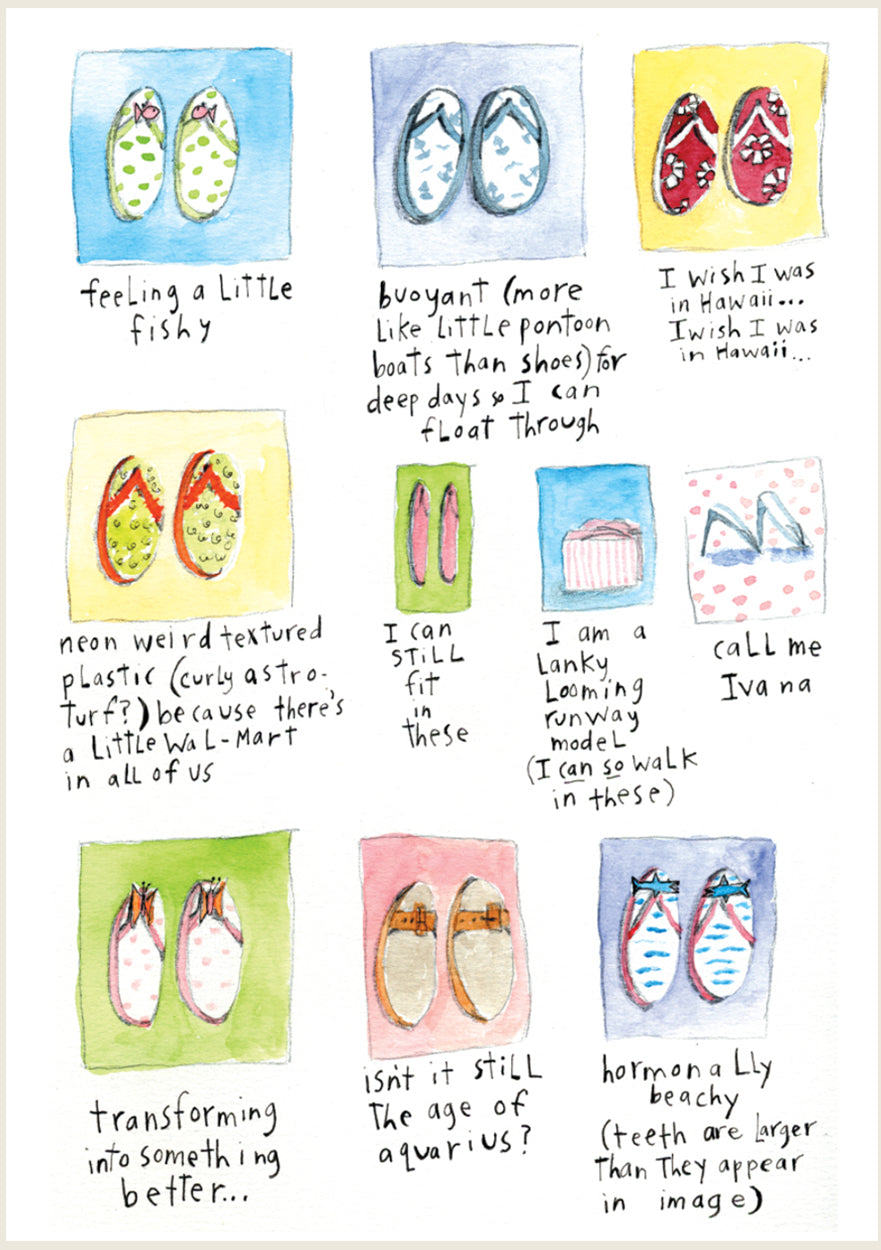 feeling a little
fishy
buoyant (more
like little pontoon
boats than shoes) for
deep days so I can
float through
I wish I was
in Hawaii...
I wish I was
in Hawaii...
neon weird textured
plastic (curly astro-
turf?) because there's
a little Wal-Mart
in all of us
I can
still
fit
in
these
I am a
lanky
looming
runway
model
(I can so walk
in these)
call me
Ivana
transforming
into something
better...
isn't it still
the age of
aquarius?
hormonally
beachy
(teeth are larger
than they appear
in image)